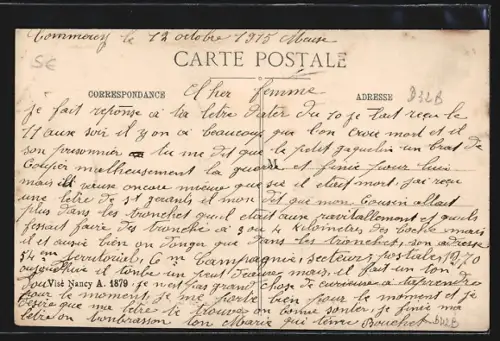 Commercy le 12 octobre 1915 Meuse
5E
CARTE POSTALE
CORRESPONDANCE
ADRESSE
D32B
Cher femme
je fait reponse a ta letre dater du 10 je lait recu le
11 aux soir il y on a beaucoup que lon croie mort et il
son prisonnier tu me dit que le petit gaquelin un bras de
couper malheusement la guerre et finie pour lui
mais il vaux oncore mieux que sie il etait mort. j'ai recu
une letre de st il mon dit que mon cousin allait
plus dans les tronchet quil etait aux ravitallement et quils
fessait faire des tronché a 3 ou 4 kilometres des boche mais
il et aussie bien on danger que dans les tronchet, son adresse
54 em territorial, 6 m Campagnie, secteurs postales 1970
aujourdhuie il tonbe un peut deaux mais, il fait un ton
doux je n'est pas grand chose de curieuse a taprendre
Visé Nancy A. 1879
pour le moment, je me porte bien pour le moment et je
desire que ma letre te trouve on bonne sonter, je finie ma
letre on tonbrasson ton Marie qui
Bouchet
D32B